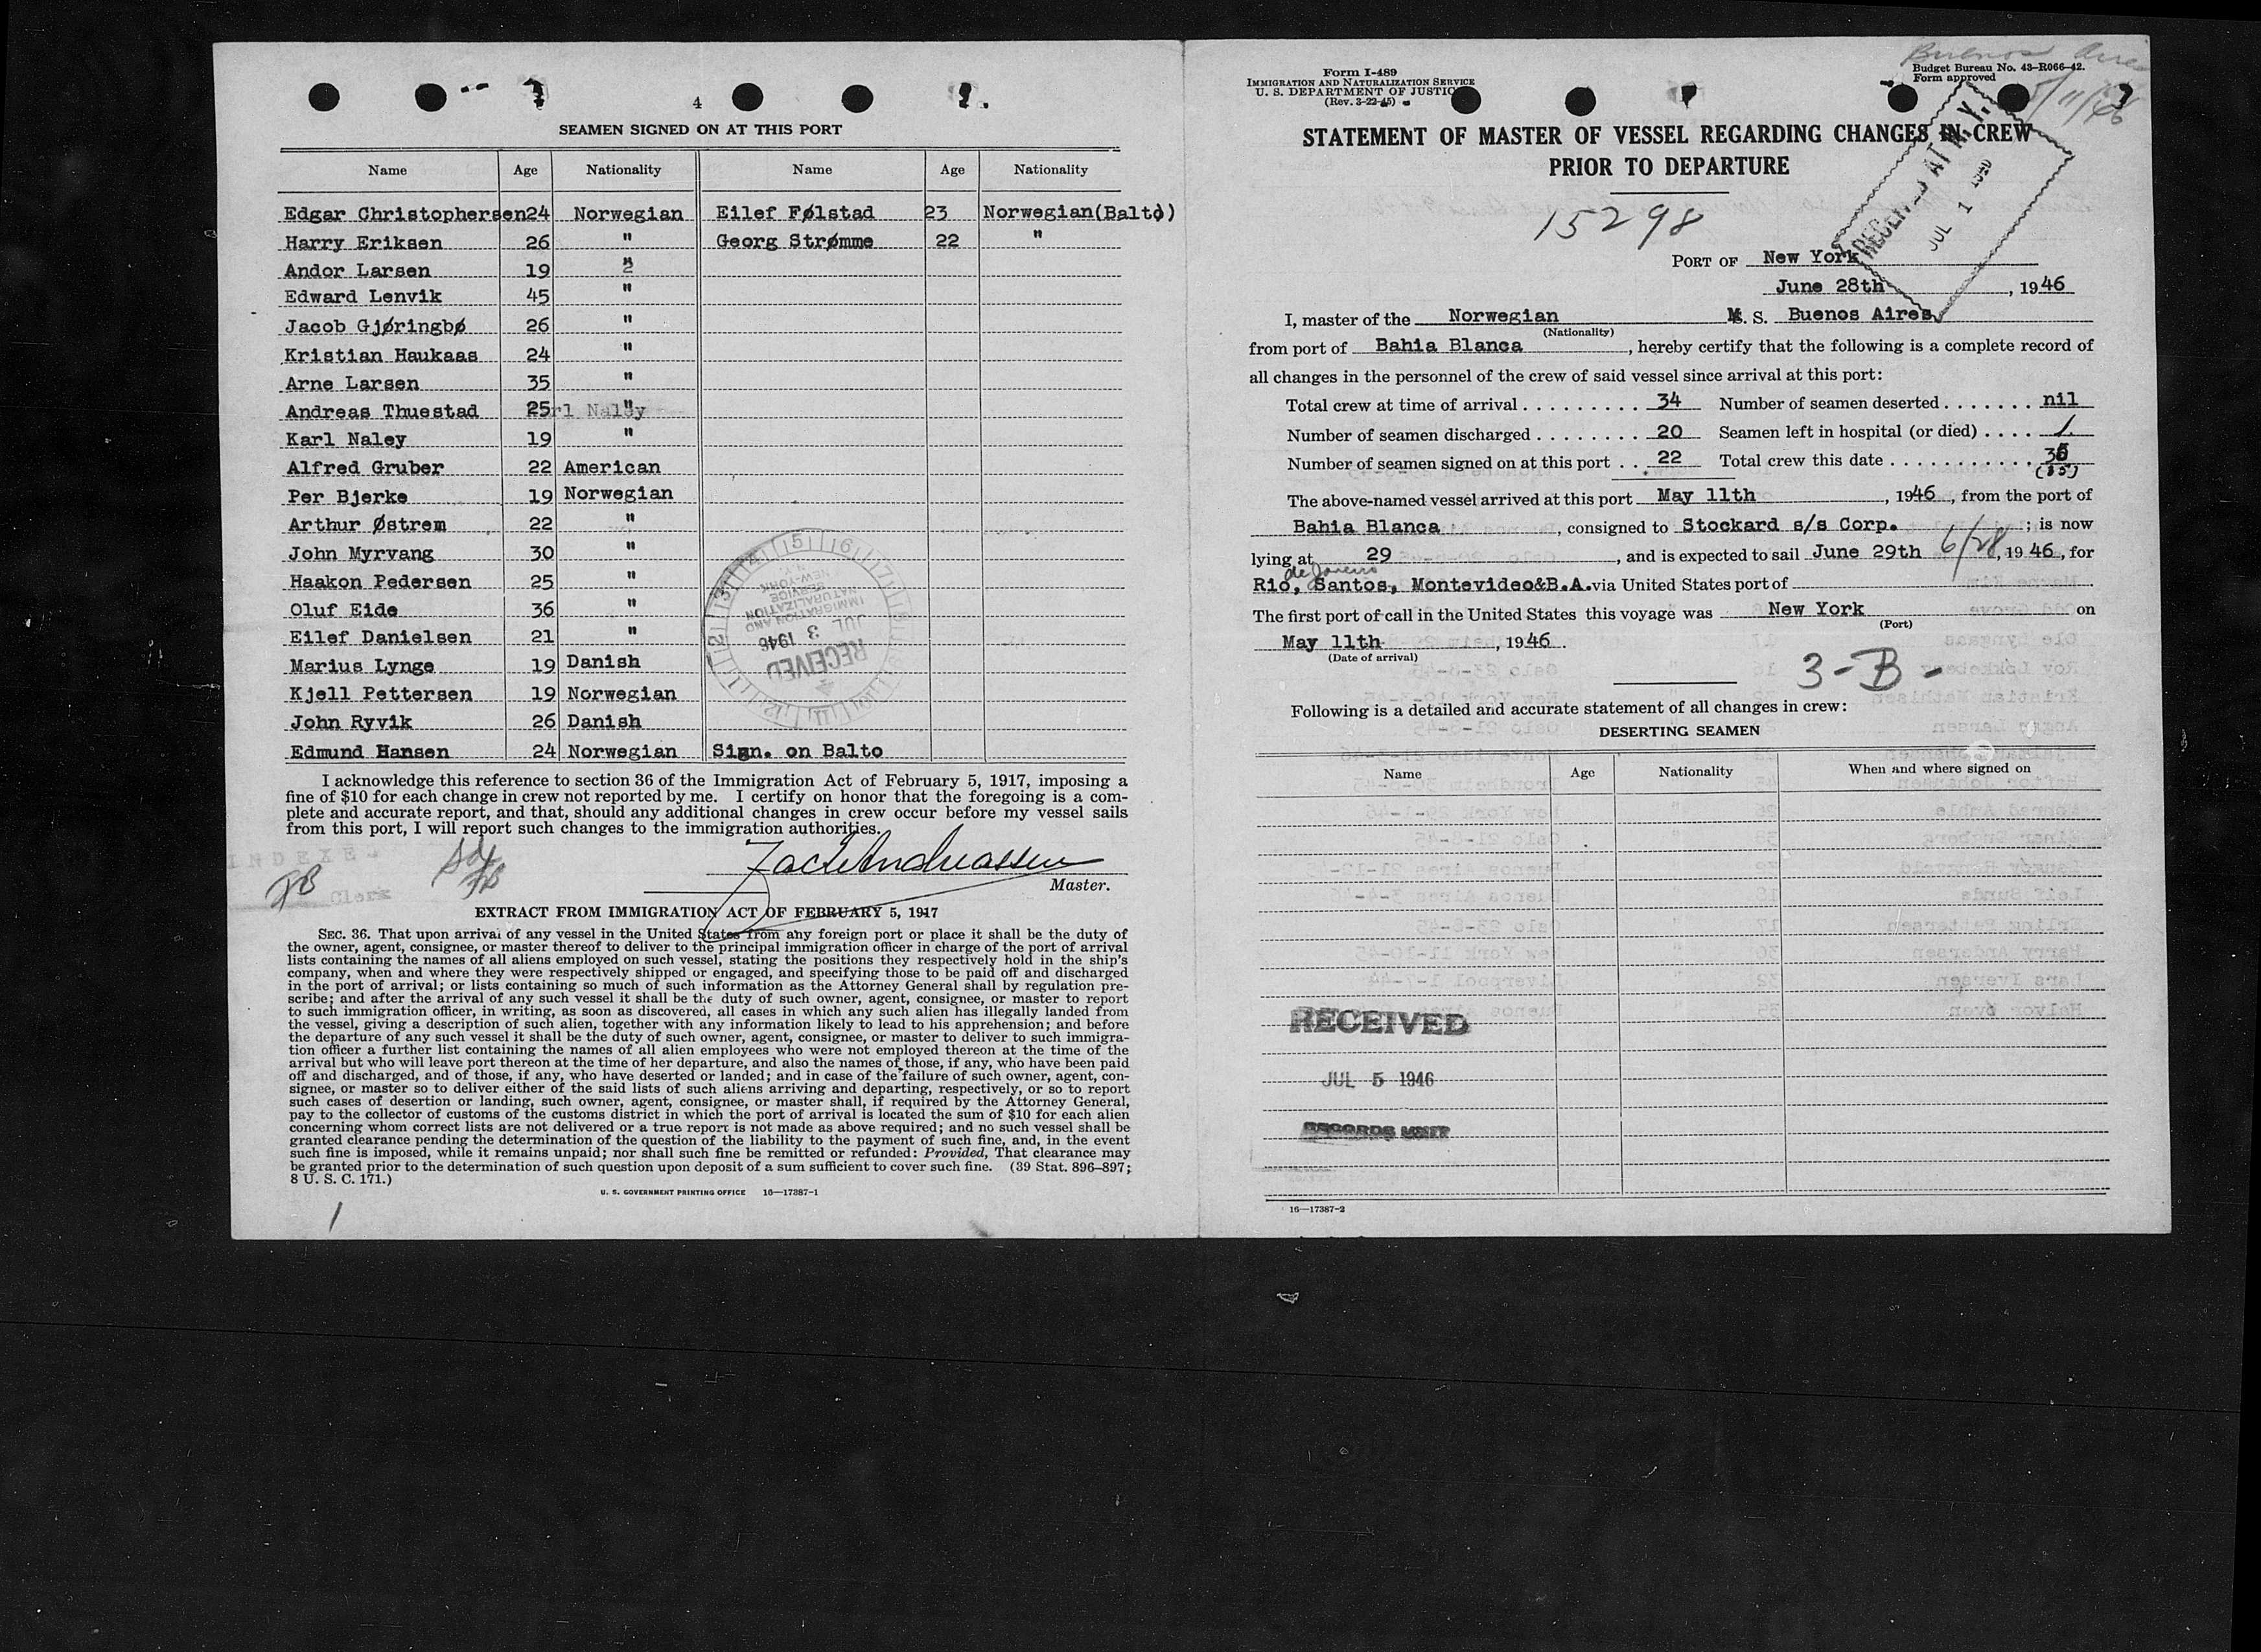 4
SEAMEN SIGNED ON AT THIS PORT
Name Age Nationality Name Age Nationality
Edgar Christophersen 24 Norwegian Eilef Følstad 23 Norwegian (Balto)
Harry Eriksen 26 " Georg Strømme 22 "
Andor Larsen 19 "
Edward Lenvik 45 "
Jacob Gjøringbø 26 "
Kristian Haukaas 24 "
Arne Larsen 35 "
Andreas Thuestad 25 "
Karl Naley 19 "
Alfred Gruber 22 American
Per Bjerke 19 Norwegian
Arthur Østrem 22 "
John Myrvang 30 "
Haakon Pedersen 25 "
Oluf Eide 36 "
Eilef Danielsen 21 "
Marius Lynge 19 Danish
Kjell Pettersen 19 Norwegian
John Ryvik 26 Danish
Edmund Hansen 24 Norwegian Sign. on Balto
IMMIGRATION AND NATURALIZATION SERVICE NEW-YORK N.Y.
JUL 3 1946
RECEIVED
I acknowledge this reference to section 36 of the Immigration Act of February 5, 1917, imposing a
fine of $10 for each change in crew not reported by me. I certify on honor that the foregoing is a com-
plete and accurate report, and that, should any additional changes in crew occur before my vessel sails
from this port, I will report such changes to the immigration authorities.
Clerk
Master.
EXTRACT FROM IMMIGRATION ACT OF FEBRUARY 5, 1917
SEC. 36. That upon arrival of any vessel in the United States from any foreign port or place it shall be the duty of
the owner, agent, consignee, or master thereof to deliver to the principal immigration officer in charge of the port of arrival
lists containing the names of all aliens employed on such vessel, stating the positions they respectively hold in the ship's
company, when and where they were respectively shipped or engaged, and specifying those to be paid off and discharged
in the port of arrival; or lists containing so much of such information as the Attorney General shall by regulation pre-
scribe; and after the arrival of any such vessel it shall be the duty of such owner, agent, consignee, or master to report
to such immigration officer, in writing, as soon as discovered, all cases in which any such alien has illegally landed from
the vessel, giving a description of such alien, together with any information likely to lead to his apprehension; and before
the departure of any such vessel it shall be the duty of such owner, agent, consignee, or master to deliver to such immigra-
tion officer a further list containing the names of all alien employees who were not employed thereon at the time of the
arrival but who will leave port thereon at the time of her departure, and also the names of those, if any, who have been paid
off and discharged, and of those, if any, who have deserted or landed; and in case of the failure of such owner, agent, con-
signee, or master so to deliver either of the said lists of such aliens arriving and departing, respectively, or so to report
such cases of desertion or landing, such owner, agent, consignee, or master shall, if required by the Attorney General,
pay to the collector of customs of the customs district in which the port of arrival is located the sum of $10 for each alien
concerning whom correct lists are not delivered or a true report is not made as above required; and no such vessel shall be
granted clearance pending the determination of the question of the liability to the payment of such fine, and, in the event
such fine is imposed, while it remains unpaid; nor shall such fine be remitted or refunded: Provided, That clearance may
be granted prior to the determination of such question upon deposit of a sum sufficient to cover such fine. (39 Stat. 896–897;
8 U. S. C. 171.)
U. S. GOVERNMENT PRINTING OFFICE 16—17387-1
Buenos Aires
5/11/46
Form I-489
IMMIGRATION AND NATURALIZATION SERVICE
U. S. DEPARTMENT OF JUSTICE
(Rev. 3-22-45)
Budget Bureau No. 43-R066-42.
Form approved
STATEMENT OF MASTER OF VESSEL REGARDING CHANGES IN CREW
PRIOR TO DEPARTURE
RECEIVED AT N.Y.
JUL 1 1946
15298
PORT OF New York
June 28th, 1946
I, master of the Norwegian M. S. Buenos Aires
(Nationality)
from port of Bahia Blanca, hereby certify that the following is a complete record of
all changes in the personnel of the crew of said vessel since arrival at this port:
Total crew at time of arrival 34 Number of seamen deserted nil
Number of seamen discharged 20 Seamen left in hospital (or died) 1
Number of seamen signed on at this port 22 Total crew this date 35
(35)
The above-named vessel arrived at this port May 11th, 1946, from the port of
Bahia Blanca, consigned to Stockard s/s Corp.; is now
lying at 29, and is expected to sail June 29th 6/28, 1946, for
de Janeiro
Rio, Santos, Montevideo&B.A. via United States port of
The first port of call in the United States this voyage was New York on
(Port)
May 11th, 1946.
(Date of arrival)
3-B-
Following is a detailed and accurate statement of all changes in crew:
DESERTING SEAMEN
Name Age Nationality When and where signed on
RECEIVED
JUL 5 1946
RECORDS UNIT
16—17387-2